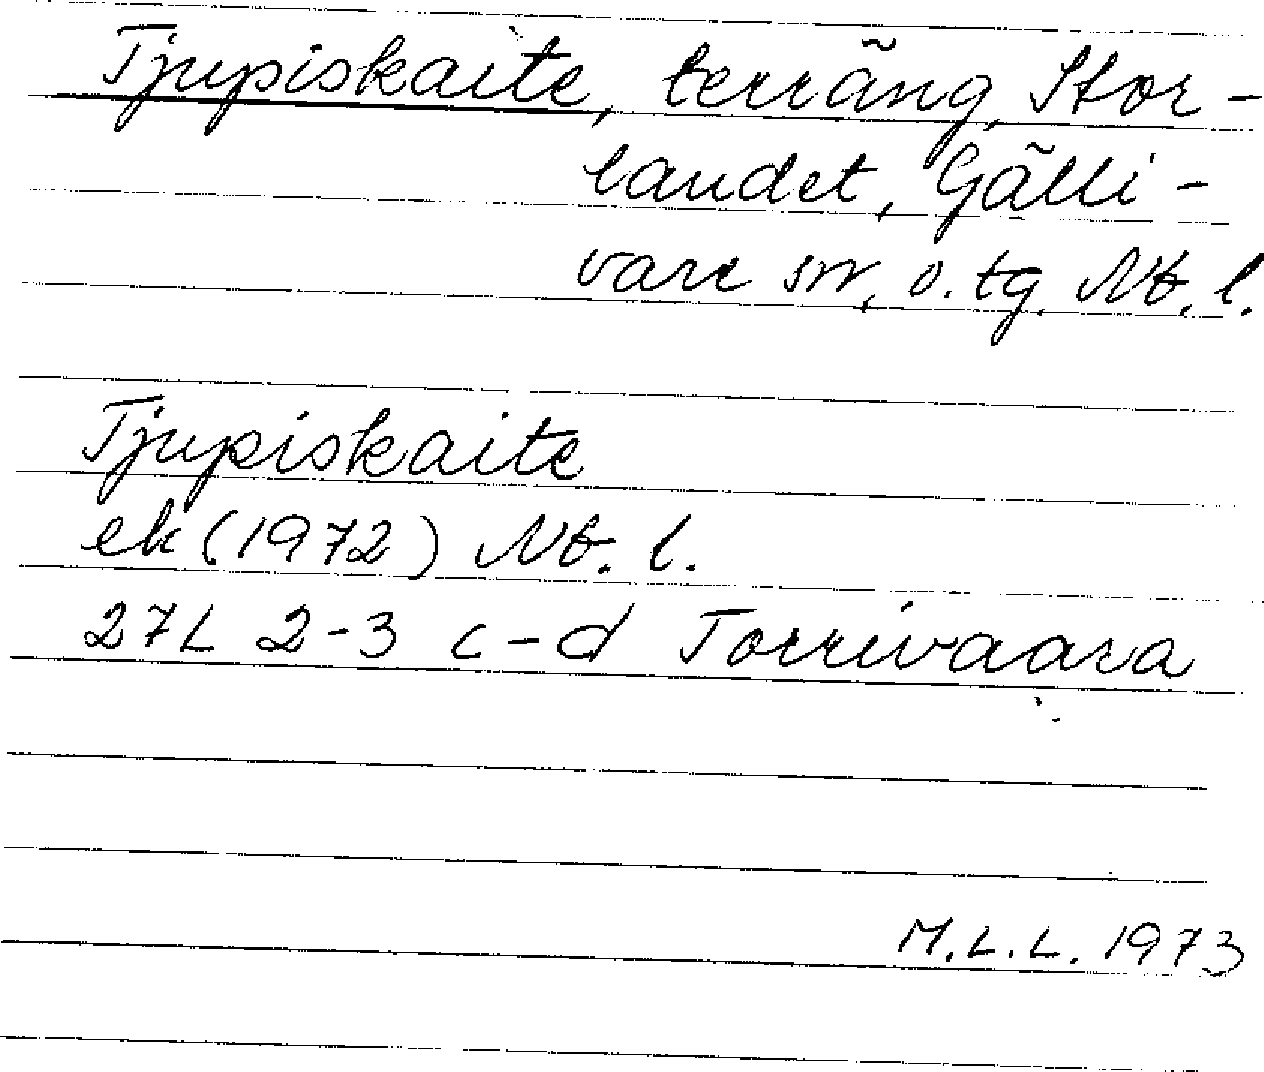 Tjupiskaite, terräng, Stor-
landet, Gälli-
vare sn, o. tg. Nb. l.
Tjupiskaite
ek (1972) Nb. l.
27L 2-3 c-d Torrivaara
M.L.L. 1973